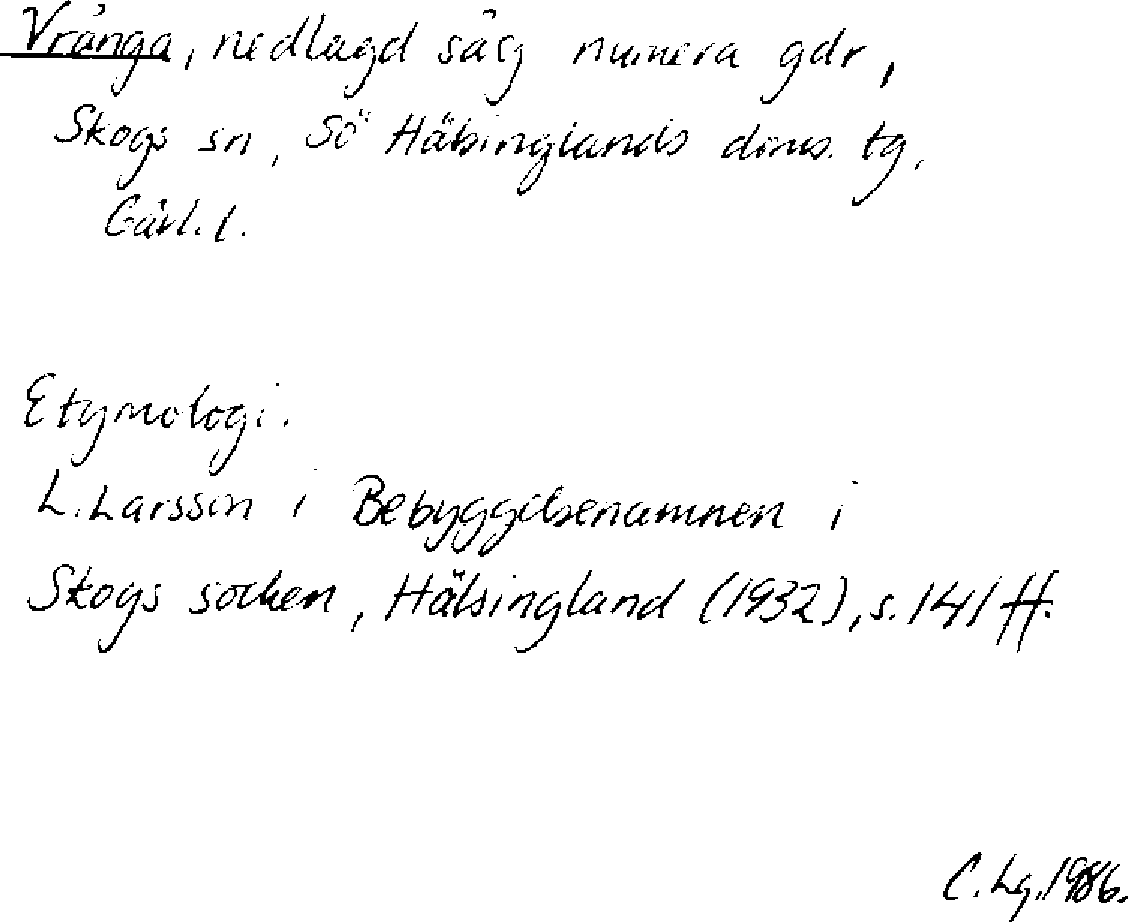 Vrånga, nedlagd såg numera gdr,
Skogs sn, Sö Hälsinglands doms. tg,
Gävl. l.
Etymologi.
L. Larsson i Bebyggelsenamnen i
Skogs socken, Hälsingland (1932), s. 141 ff.
C. Lg. 1986.